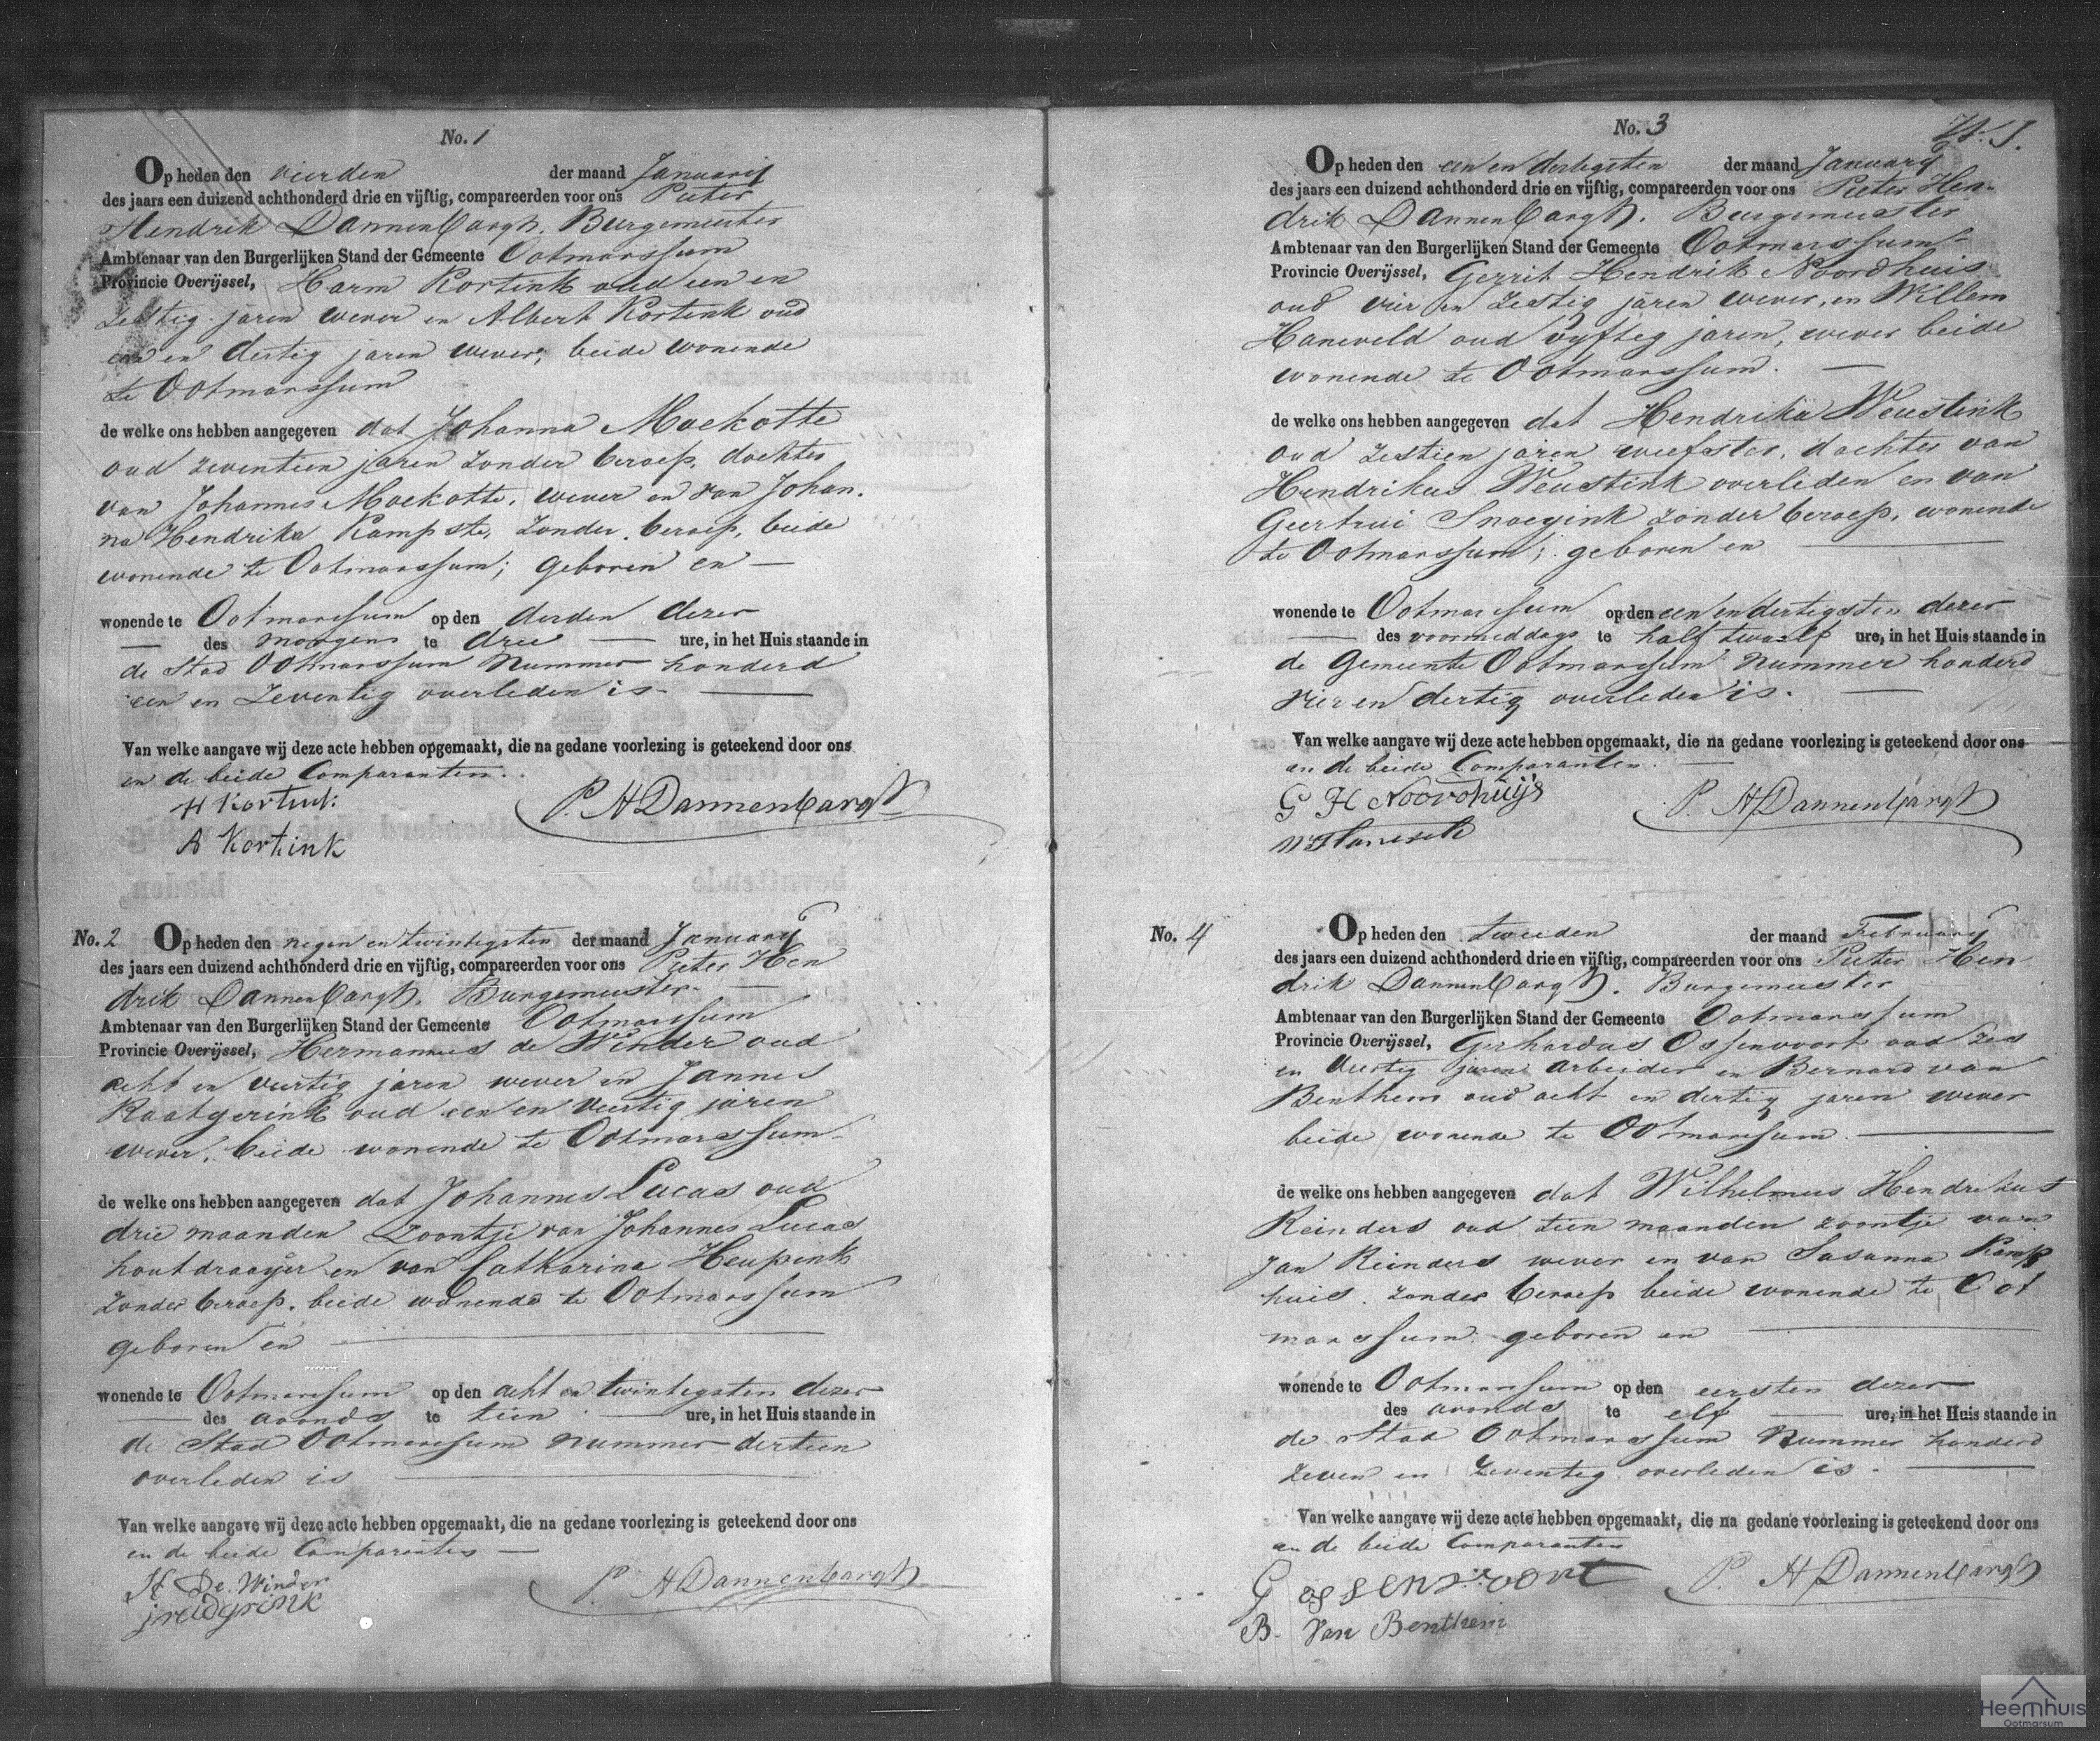 No. 1
Op heden den vierden der maand Januarij
des jaars een duizend achthonderd drie en vijftig, compareerden voor ons Pieter
Hendrik Dannenbargh. Burgemeester
Ambtenaar van den Burgerlijken Stand der Gemeente Ootmarssum
Provincie Overijssel, Harm Kortink oud een en
zestig jaren wever en Albert Kortink oud
een en dertig jaren wever, beide wonende
te Ootmarssum
de welke ons hebben aangegeven dat Johanna Moekotte
oud zeventien jaren zonder beroep, dochter
van Johannes Moekotte, wever en van Johan-
na Hendrika Kampste, zonder beroep, beide
wonende te Ootmarssum; geboren en —
wonende te Ootmarssum op den derden dezer
— des morgens te drie — ure, in het Huis staande in
de Stad Ootmarssum Nummer honderd
een en zeventig overleden is. —
Van welke aangave wij deze acte hebben opgemaakt, die na gedane voorlezing is geteekend door ons
en de beide Comparanten.
H Kortink
P. H Dannenbargh
A Kortink
No. 2 Op heden den negen en twintigsten der maand January
des jaars een duizend achthonderd drie en vijftig, compareerden voor ons Pieter Hen
drik Dannenbargh. Burgemeester. —
Ambtenaar van den Burgerlijken Stand der Gemeente Ootmarssum
Provincie Overijssel, Hermannus de Winder oud
acht en veertig jaren wever en Jannes
Raatgerink oud een en veertig jaren
wever, beide wonende te Ootmarssum
de welke ons hebben aangegeven dat Johannes Lucas oud
drie maanden Zoontje van Johannes Lucas
houtdraayer en van Catharina Heupink
zonder beroep, beide wonende te Ootmarssum
geboren en —
wonende te Ootmarssum op den acht en twintigsten dezer
— des avonds te tien — ure, in het Huis staande in
de Stad Ootmarssum nummer dertien
overleden is —
Van welke aangave wij deze acte hebben opgemaakt, die na gedane voorlezing is geteekend door ons
en de beide Comparanten —
H De Winder
P. H Dannenbargh
No. 3
Op heden den een en dertigsten der maand January
des jaars een duizend achthonderd drie en vijftig, compareerden voor ons Pieter Hen-
drik Dannenbargh. Burgemeester
Ambtenaar van den Burgerlijken Stand der Gemeente Ootmarssum
Provincie Overijssel, Gerrit Hendrik Noordhuis
oud vier en zestig jaren wever, en Willem
Haneveld oud vyftig jaren, wever beide
wonende te Ootmarssum. —
de welke ons hebben aangegeven dat Hendrika Weustink
oud zestien jaren weefster, dochter van
Hendrikus Weustink overleden en van
Geertrui Snoeyink zonder beroep, wonende
te Ootmarssum; geboren en —
wonende te Ootmarssum op den een en dertigsten dezer
— des voormiddags te half twaalf ure, in het Huis staande in
de Gemeente Ootmarssum nummer honderd
vier en dertig overleden is. —
Van welke aangave wij deze acte hebben opgemaakt, die na gedane voorlezing is geteekend door ons
en de beide Comparanten. —
G H Noordhuijs
P. H Dannenbargh
No. 4 Op heden den tweeden der maand February
des jaars een duizend achthonderd drie en vijftig, compareerden voor ons Pieter Hen
drik Dannenbargh. Burgemeester
Ambtenaar van den Burgerlijken Stand der Gemeente Ootmarssum
Provincie Overijssel, Gerhardus Ossenvoort oud zes
en veertig jaren arbeider en Bernard van
Benthem oud acht en dertig jaren wever
beide wonende te Ootmarssum —
de welke ons hebben aangegeven dat Wilhelmus Hendrikus
Reinders oud tien maanden zoontje van
Jan Reinders wever en van Susanna Kamp
huis, zonder beroep beide wonende te Oot
marssum. geboren en —
wonende te Ootmarssum op den eersten dezer
des avonds te elf — ure, in het Huis staande in
de Stad Ootmarssum Nummer honderd
zeven en zeventig overleden is. —
Van welke aangave wij deze acte hebben opgemaakt, die na gedane voorlezing is geteekend door ons
en de beide Comparanten
G ossenvoort
P. H Dannenbargh
B. Van Benthem
Heemhuis
Ootmarsum